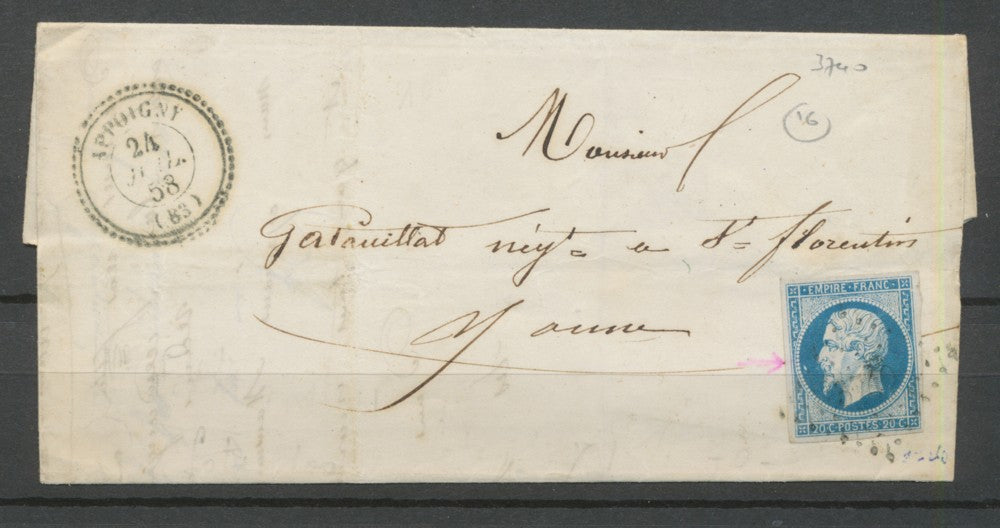 3740
16
APPOIGNY
24
JUIL
58
(83)
Monsieur
négt a St florentin
Yonne
EMPIRE · FRANC ·
20 C · POSTES 20 C ·